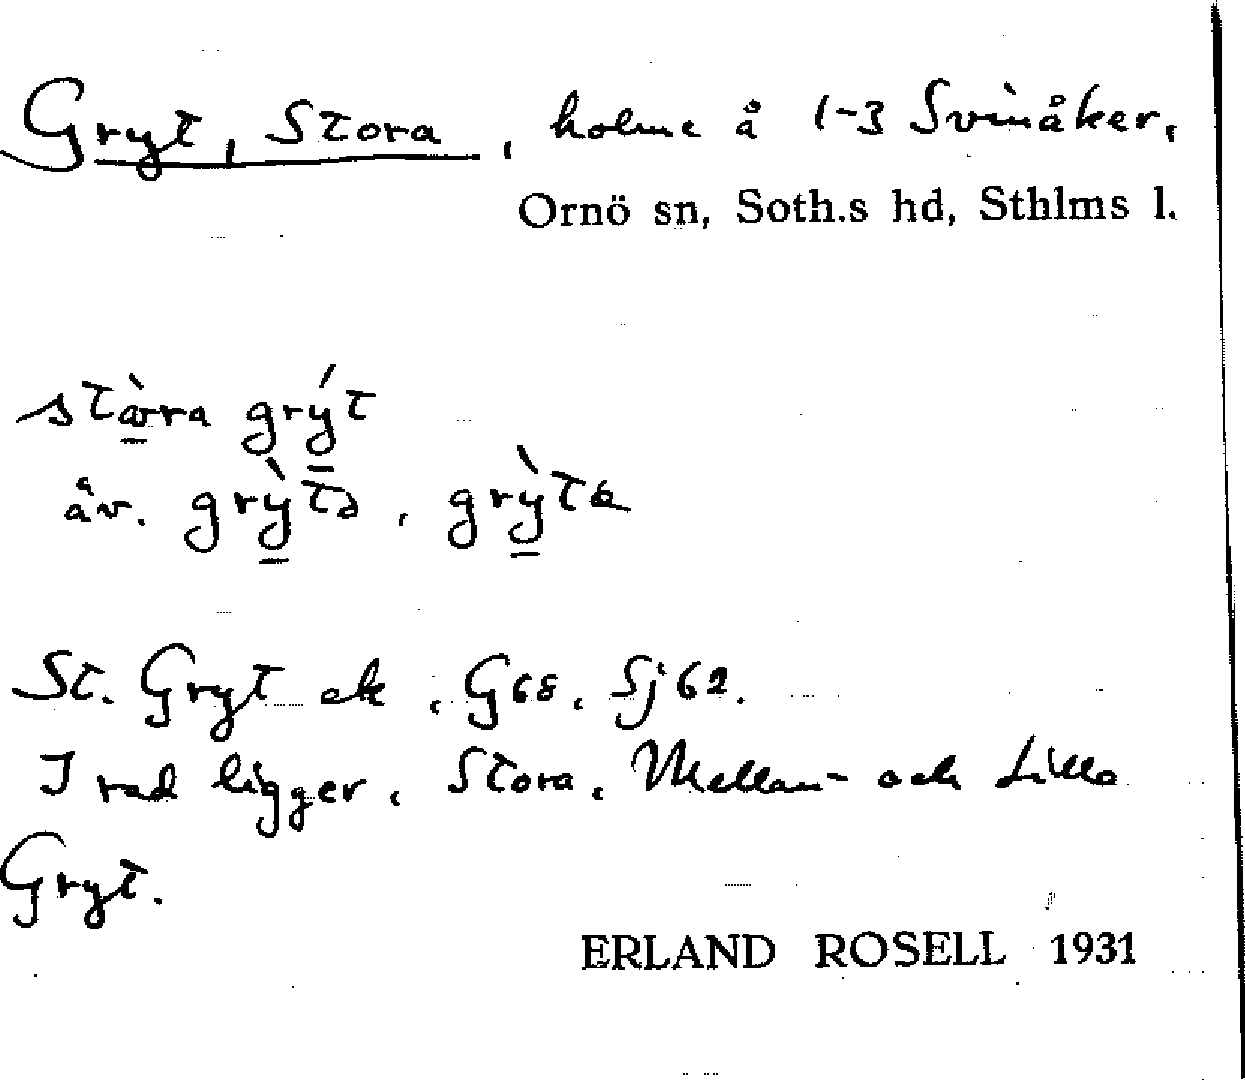 Gryt, Stora, holme å 1-3 Svinåker,
Ornö sn, Soth.s hd, Sthlms l.
stàrra grýt
äv. grỳtə, grỳta
St. Gryt ek, G68, Sj62.
I rad ligger, Stora, Mellan- och Lilla
Gryt.
ERLAND ROSELL 1931